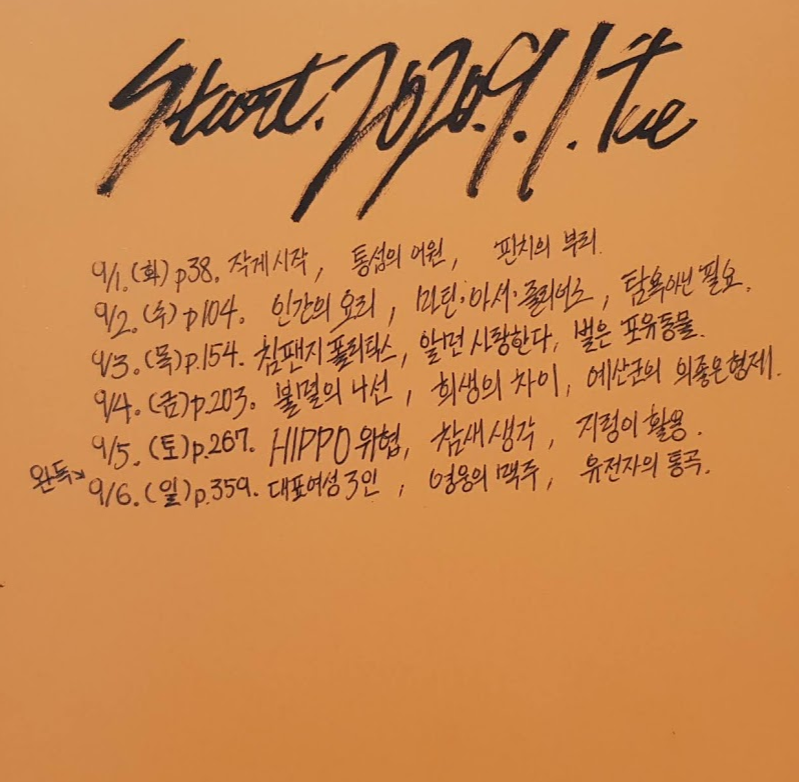 Start. 2020. 9. 1. Tue
9/1. (화) p38. 작게 시작, 통섭의 어원, 핀치의 부리.
9/2. (수) p104. 인간의 요리, 마틴·아서·줄리어스, 탐욕아닌 필요.
9/3. (목) p.154. 침팬지 폴리틱스, 알면 사랑한다, 벌은 포유동물.
9/4. (금) p.203. 불멸의 나선, 희생의 차이, 예산군의 의좋은 형제.
9/5. (토) p.267. HIPPO 위험, 참새 생각, 지렁이 활용.
완독↘ 9/6. (일) p.359. 대표여성 3인, 영웅의 맥주, 유전자의 통곡.